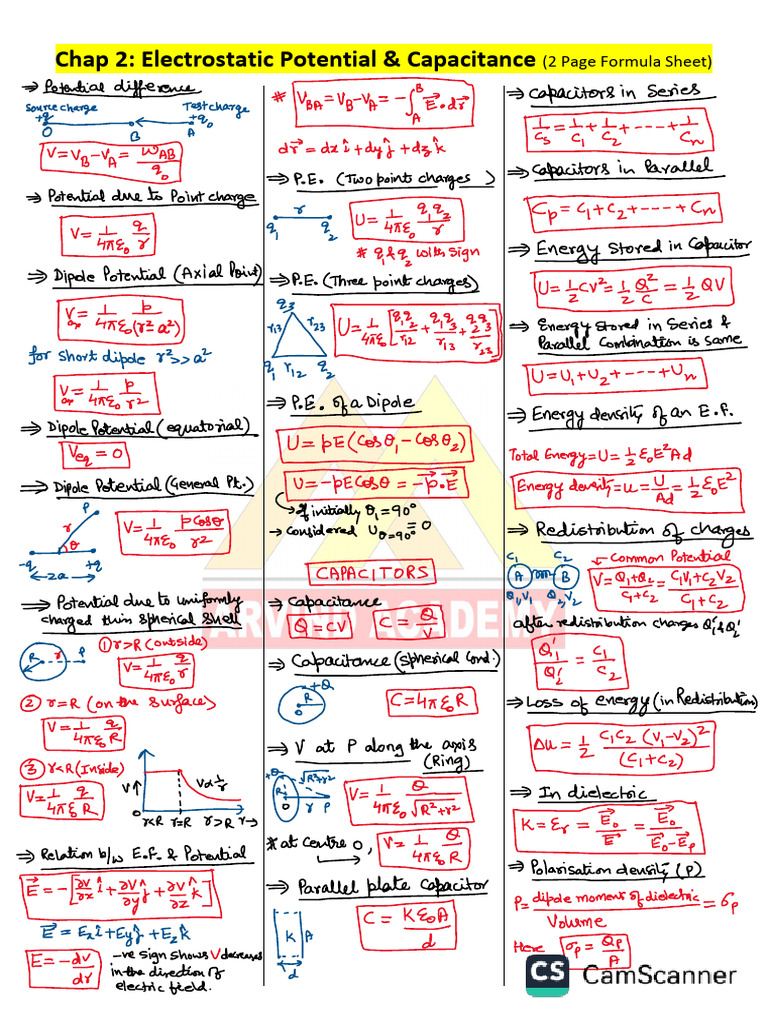 Chap 2: Electrostatic Potential & Capacitance (2 Page Formula Sheet)
⇒ Potential difference
Source charge Test charge
+q +q₀
O B A
V = V_B - V_A = W_AB/q₀
⇒ Potential due to Point charge
V = 1/4πε₀ q/r
⇒ Dipole Potential (Axial Point)
V_ax = 1/4πε₀ p/(r² a²)
for short dipole r² >> a²
V_ax = 1/4πε₀ p/r²
⇒ Dipole Potential (equatorial)
V_eq = 0
⇒ Dipole Potential (General Pt.)
P
r
θ
-q +q
←2a→
V = 1/4πε₀ pcosθ/r²
⇒ Potential due to uniformly
charged thin spherical shell
① r>R (outside)
R r P
V = 1/4πε₀ q/r
② r=R (on the surface)
V = 1/4πε₀ q/R
③ r<R (Inside)
V = 1/4πε₀ q/R
V↑
V∝1/r
O r<R r=R r>R r→
⇒ Relation b/w E.F. & Potential
E⃗ = -[∂V/∂x î + ∂V/∂y ĵ + ∂V/∂z k̂]
E⃗ = E_x î + E_y ĵ + E_z k̂
E = -dV/dr
-ve sign shows V decreases
in the direction of
electric field.
# V_BA = V_B - V_A = -∫_A^B E⃗.dr⃗
dr⃗ = dx î + dy ĵ + dz k̂
⇒ P.E. (Two point charges)
r
q₁ q₂
U = 1/4πε₀ q₁q₂/r
# q₁ & q₂ with sign
⇒ P.E. (Three point charges)
q₃
r₁₃ r₂₃
q₁ r₁₂ q₂
U = 1/4πε₀ [q₁q₂/r₁₂ + q₁q₃/r₁₃ + q₂q₃/r₂₃]
⇒ P.E. of a Dipole
U = pE(cosθ₁ - cosθ₂)
U = -pEcosθ = -p⃗.E⃗
→ if initially θ₁ = 90°
→ considered U_θ=90° = 0
CAPACITORS
⇒ Capacitance
Q = CV C = Q/V
⇒ Capacitance (Spherical Cond.)
+Q
R
O
C = 4πε₀R
⇒ V at P along the axis
(Ring)
+Q √R²+r²
R
O r P
V = 1/4πε₀ Q/√R²+r²
* at centre O, V = 1/4πε₀ Q/R
⇒ Parallel plate Capacitor
K A
d
C = Kε₀A/d
⇒ Capacitors in Series
1/Cs = 1/C₁ + 1/C₂ + ---- + 1/Cn
⇒ Capacitors in Parallel
Cp = C₁ + C₂ + ---- + Cn
⇒ Energy Stored in Capacitor
U = 1/2 CV² = 1/2 Q²/C = 1/2 QV
⇒ Energy Stored in Series &
Parallel Combination is same
U = U₁ + U₂ + ---- + Un
⇒ Energy density of an E.F.
Total Energy = U = 1/2 ε₀E²Ad
Energy density = u = U/Ad = 1/2 ε₀E²
⇒ Redistribution of charges
C₁ C₂
A B
Q₁V₁ Q₂V₂
← Common Potential
V = Q₁+Q₂/C₁+C₂ = C₁V₁+C₂V₂/C₁+C₂
after redistribution charges Q₁' & Q₂'
Q₁'/Q₂' = C₁/C₂
⇒ Loss of energy (in Redistribution)
Δu = 1/2 C₁C₂(V₁-V₂)²/(C₁+C₂)
⇒ In dielectric
K = εr = E₀⃗/E⃗ = E₀⃗/E₀⃗-Ep⃗
⇒ Polarisation density (P)
P = dipole moment of dielectric/Volume = σp
Here σp = Qp/A
ARVIND ACADEMY
CS CamScanner